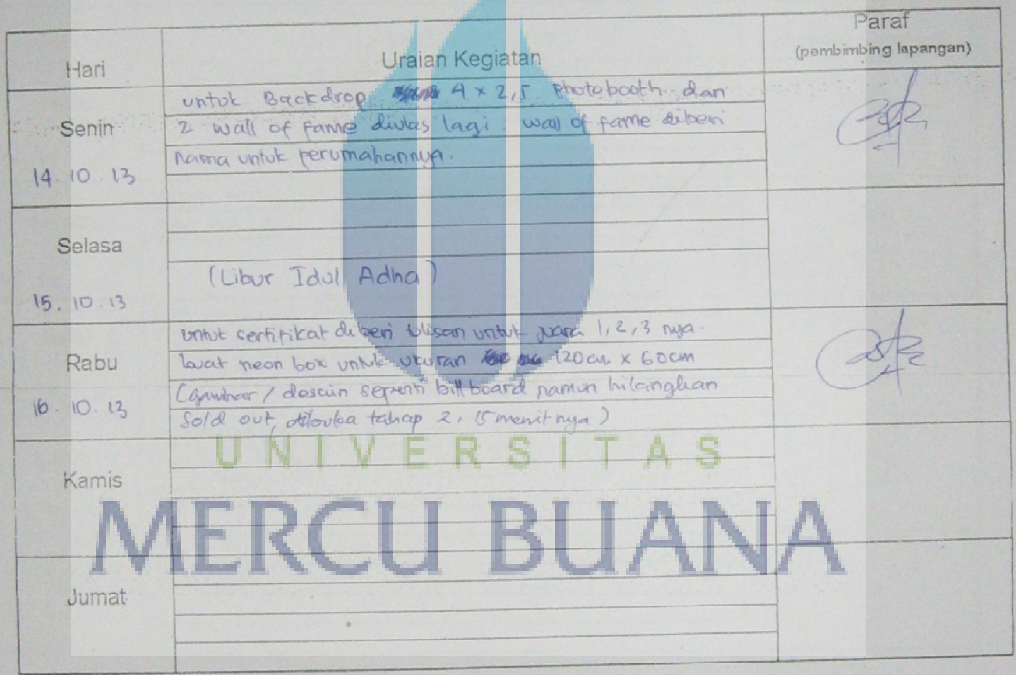 Hari
Uraian Kegiatan
Paraf
(pembimbing lapangan)
Senin
14.10.13
untuk Backdrop 4 x 2,5 Photobooth dan
2 wall of fame diulas lagi. wall of fame diberi
nama untuk perumahannya.
Selasa
15.10.13
(Libur Idul Adha)
Rabu
16.10.13
untuk certifikat diberi tulisan untuk juara 1,2,3 nya.
buat neon box untuk ukuran 120 cm x 60cm
(gambar / desain seperti billboard namun hilangkan
Sold out, dibuka tahap 2, 15 menit nya)
Kamis
Jumat
UNIVERSITAS
MERCU BUANA